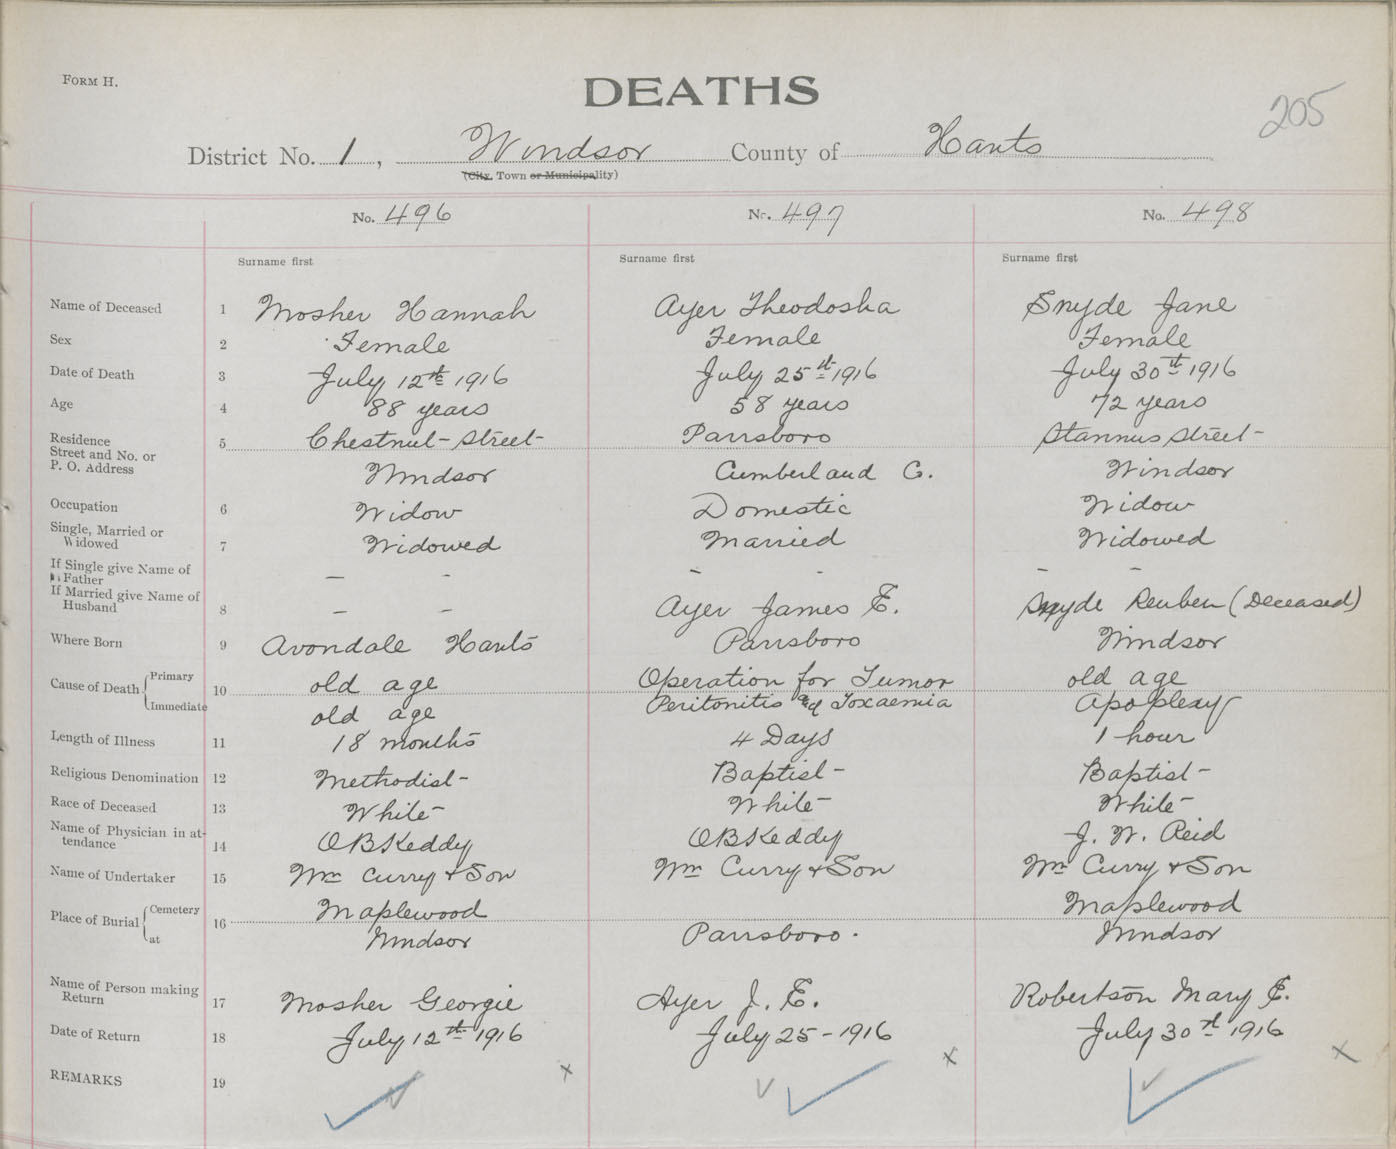 FORM H.
DEATHS
205
District No. 1, Windsor County of Hants
(City, Town or Municipality)
No. 496 No. 497 No. 498
Surname first Surname first Surname first
Name of Deceased 1 Mosher Hannah Ayer Theodosha Snyde Jane
Sex 2 Female Female Female
Date of Death 3 July 12th 1916 July 25th 1916 July 30th 1916
Age 4 88 years 58 years 72 years
Residence Street and No. or P. O. Address 5 Chestnut Street Parrsboro Stannus Street
Windsor Cumberland C. Windsor
Occupation 6 Widow Domestic Widow
Single, Married or Widowed 7 Widowed Married Widowed
If Single give Name of Father — - - - - -
If Married give Name of Husband 8 — - Ayer James E. Snyde Reuben (Deceased)
Where Born 9 Avondale Hants Parrsboro Windsor
Cause of Death Primary 10 old age Operation for Tumor old age
Immediate old age Peritonitis and Toxaemia Apoplexy
Length of Illness 11 18 months 4 Days 1 hour
Religious Denomination 12 Methodist Baptist Baptist
Race of Deceased 13 White White White
Name of Physician in attendance 14 O B Keddy O B Keddy J. W. Reid
Name of Undertaker 15 Wm Curry & Son Wm Curry & Son Wm Curry & Son
Place of Burial Cemetery 16 Maplewood Maplewood
at Windsor Parrsboro. Windsor
Name of Person making Return 17 Mosher Georgie Ayer J. E. Robertson Mary E.
Date of Return 18 July 12th 1916 July 25 - 1916 July 30th 1916
REMARKS 19 x x x